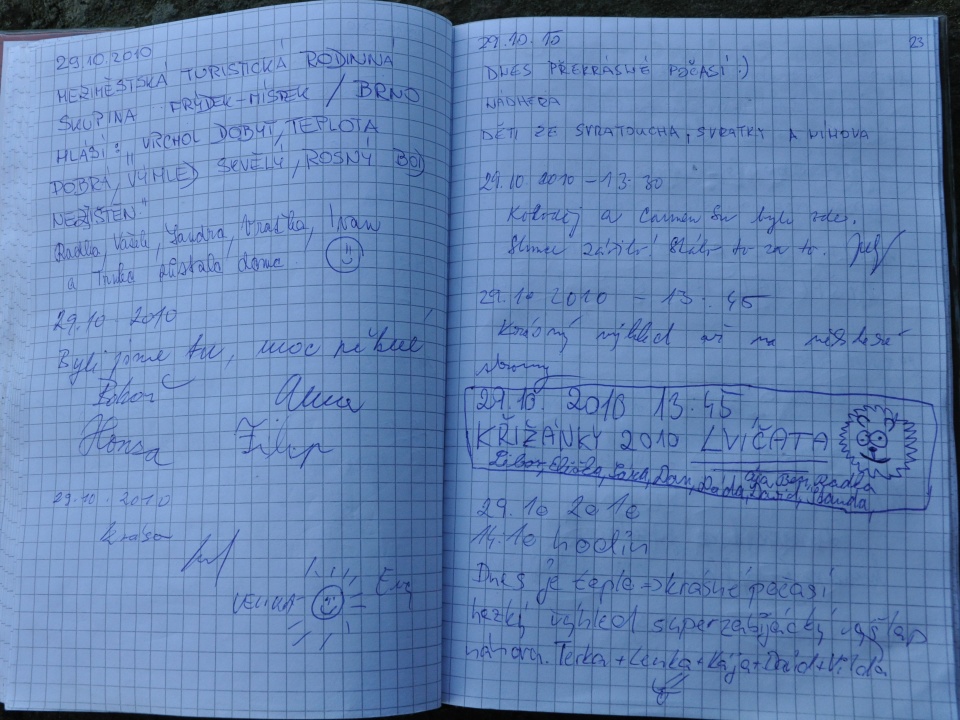 29.10.2010
MEZIMĚSTSKÁ TURISTICKÁ RODINNÁ
SKUPINA FRÝDEK-MÍSTEK / BRNO
HLÁSÍ: „VRCHOL DOBYT, TEPLOTA
DOBRÁ, VÝHLED SKVĚLÝ, ROSNÝ BOD
NEZJIŠTĚN."
Radka, Vašek, Sandra, Vraťka, Ivan
a Trnka zůstala doma
29.10 2010
Byli jsme tu, moc pěkné
Anna
Honza Filip
29.10.2010
Krása
VELIKÁ
23
29.10.10
DNES PŘEKRÁSNÉ POČASÍ :)
NÁDHERA
DĚTI ZE SVRATOUCHA, SVRATKY A
29.10 2010 - 13.30
a byli zde.
to za to.
29.10 2010 - 13.45
Krásný výhled až na
29.10. 2010 13.45
KŘIŽÁNKY 2010 LVÍČATA
Libor, Eliška, Dan, Radka
David, Standa
29.10 2010
14.10 hodin
Dnes je teplo → krásné počasí
hezký výhled superzabijácký výšlap
nahoru. Terka + Lenka + Kája + David + Vilda